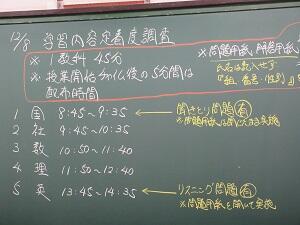 12/8 学習内容定着度調査
※ 1教科 45分
※ 授業開始 の5分間は
配布時間
※ 問題用紙、解答用紙
氏名は記入せず
『組、番号、性別』
1 国 8:45~9:35
2 社 9:45~10:35
3 数 10:50~11:40
4 理 11:50~12:40
5 英 13:45~14:35
聞きとり問題有
※問題用紙は開
リスニング問題有
※問題用紙を開いて実施